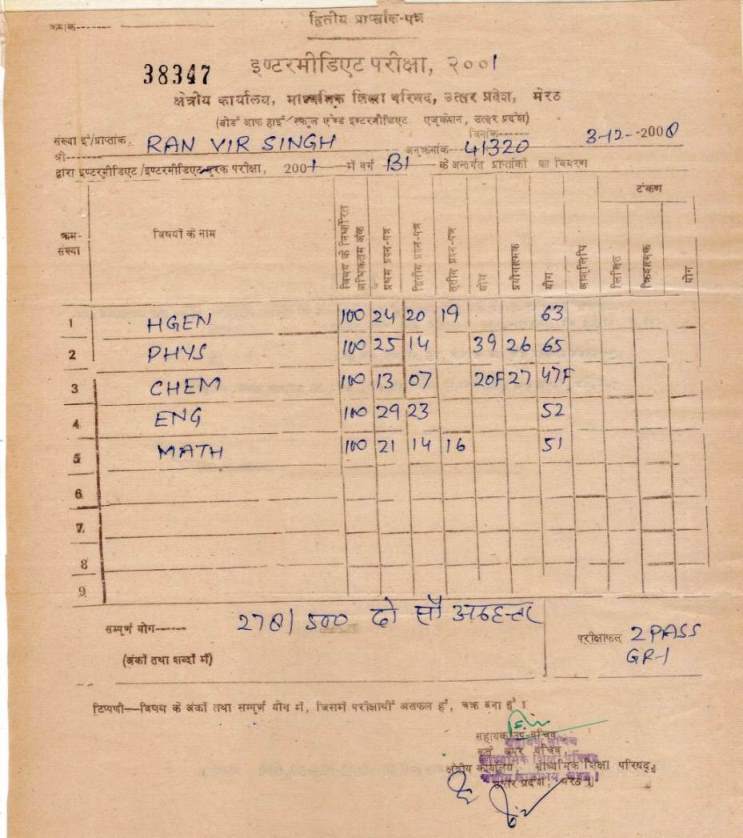 क्रमांक-------
द्वितीय प्राप्तांक-पत्र
38347
इण्टरमीडिएट परीक्षा, २००1
क्षेत्रीय कार्यालय, माध्यमिक शिक्षा परिषद, उत्तर प्रदेश, मेरठ
(बोर्ड आफ हाई स्कूल एण्ड इण्टरमीडिएट एजूकेशन, उत्तर प्रदेश)
संस्था इ०/प्राप्तांक, RAN VIR SINGH दिनांक 3-12--2008
श्री------ अनुक्रमांक 41320
द्वारा इण्टरमीडिएट/इण्टरमीडिएट पूरक परीक्षा, 2001 में वर्ग B1 के अन्तर्गत प्राप्तांकों का विवरण
टंकण
क्रम-संख्या विषयों के नाम विषय के निर्धारित अधिकतम अंक प्रथम प्रश्न-पत्र द्वितीय प्रश्न-पत्र तृतीय प्रश्न-पत्र योग प्रयोगात्मक योग आशुलिपि लिखित क्रियात्मक योग
1 HGEN 100 24 20 19 63
2 PHYS 100 25 14 39 26 65
3 CHEM 100 13 07 20F 27 47F
4 ENG 100 29 23 52
5 MATH 100 21 14 16 51
6
7.
8
9
सम्पूर्ण योग------ 278/500 दो सौ अठहत्तर
(अंकों तथा शब्दों में)
परीक्षाफल 2PASS
GR-1
टिप्पणी—विषय के अंकों तथा सम्पूर्ण योग में, जिसमें परीक्षार्थी असफल है, चक्र बना है।
सहायक/उप-सचिव
कृते अपर सचिव
क्षेत्रीय कार्यालय, माध्यमिक शिक्षा परिषद,
उत्तर प्रदेश, मेरठ